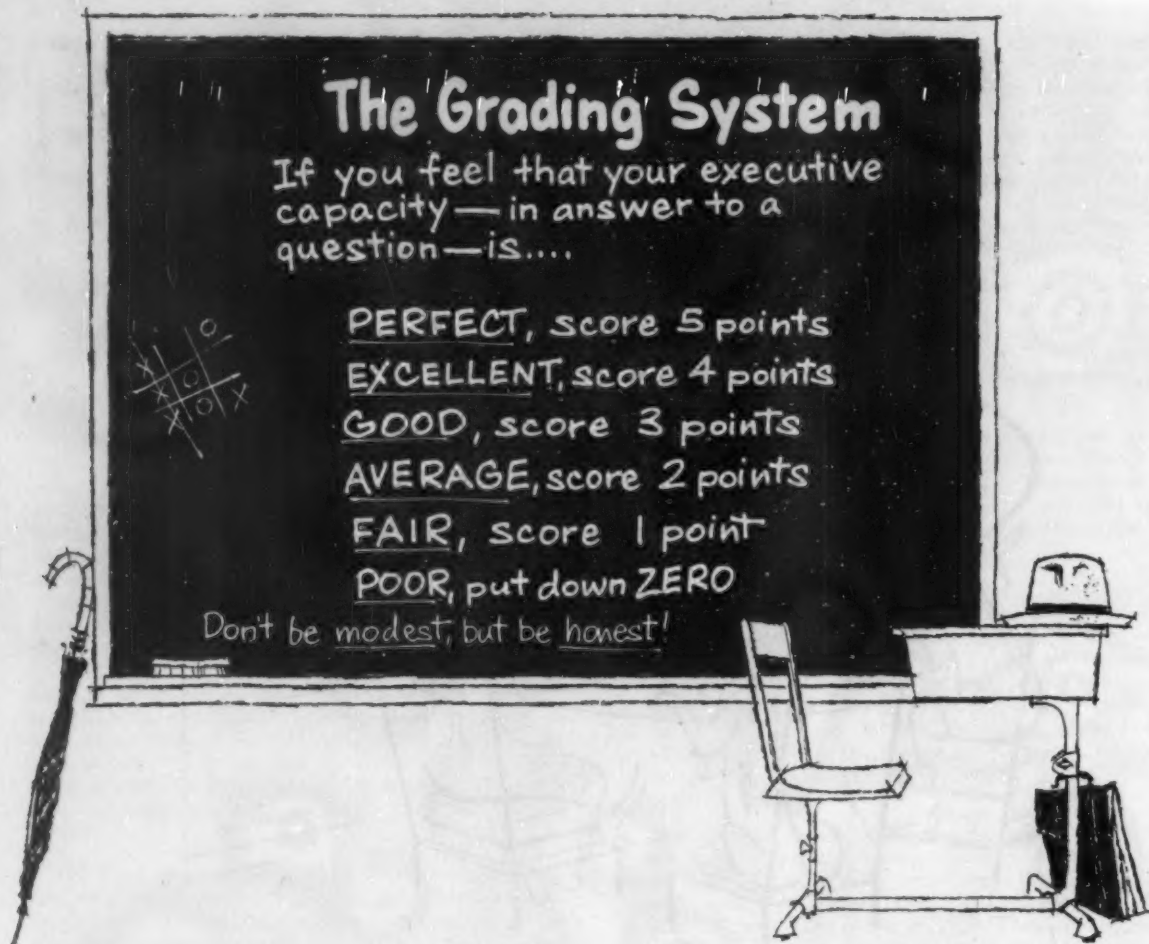 The Grading System
If you feel that your executive
capacity—in answer to a
question—is....
PERFECT, score 5 points
EXCELLENT, score 4 points
GOOD, score 3 points
AVERAGE, score 2 points
FAIR, score 1 point
POOR, put down ZERO
Don't be modest, but be honest!
O
X O
X O X